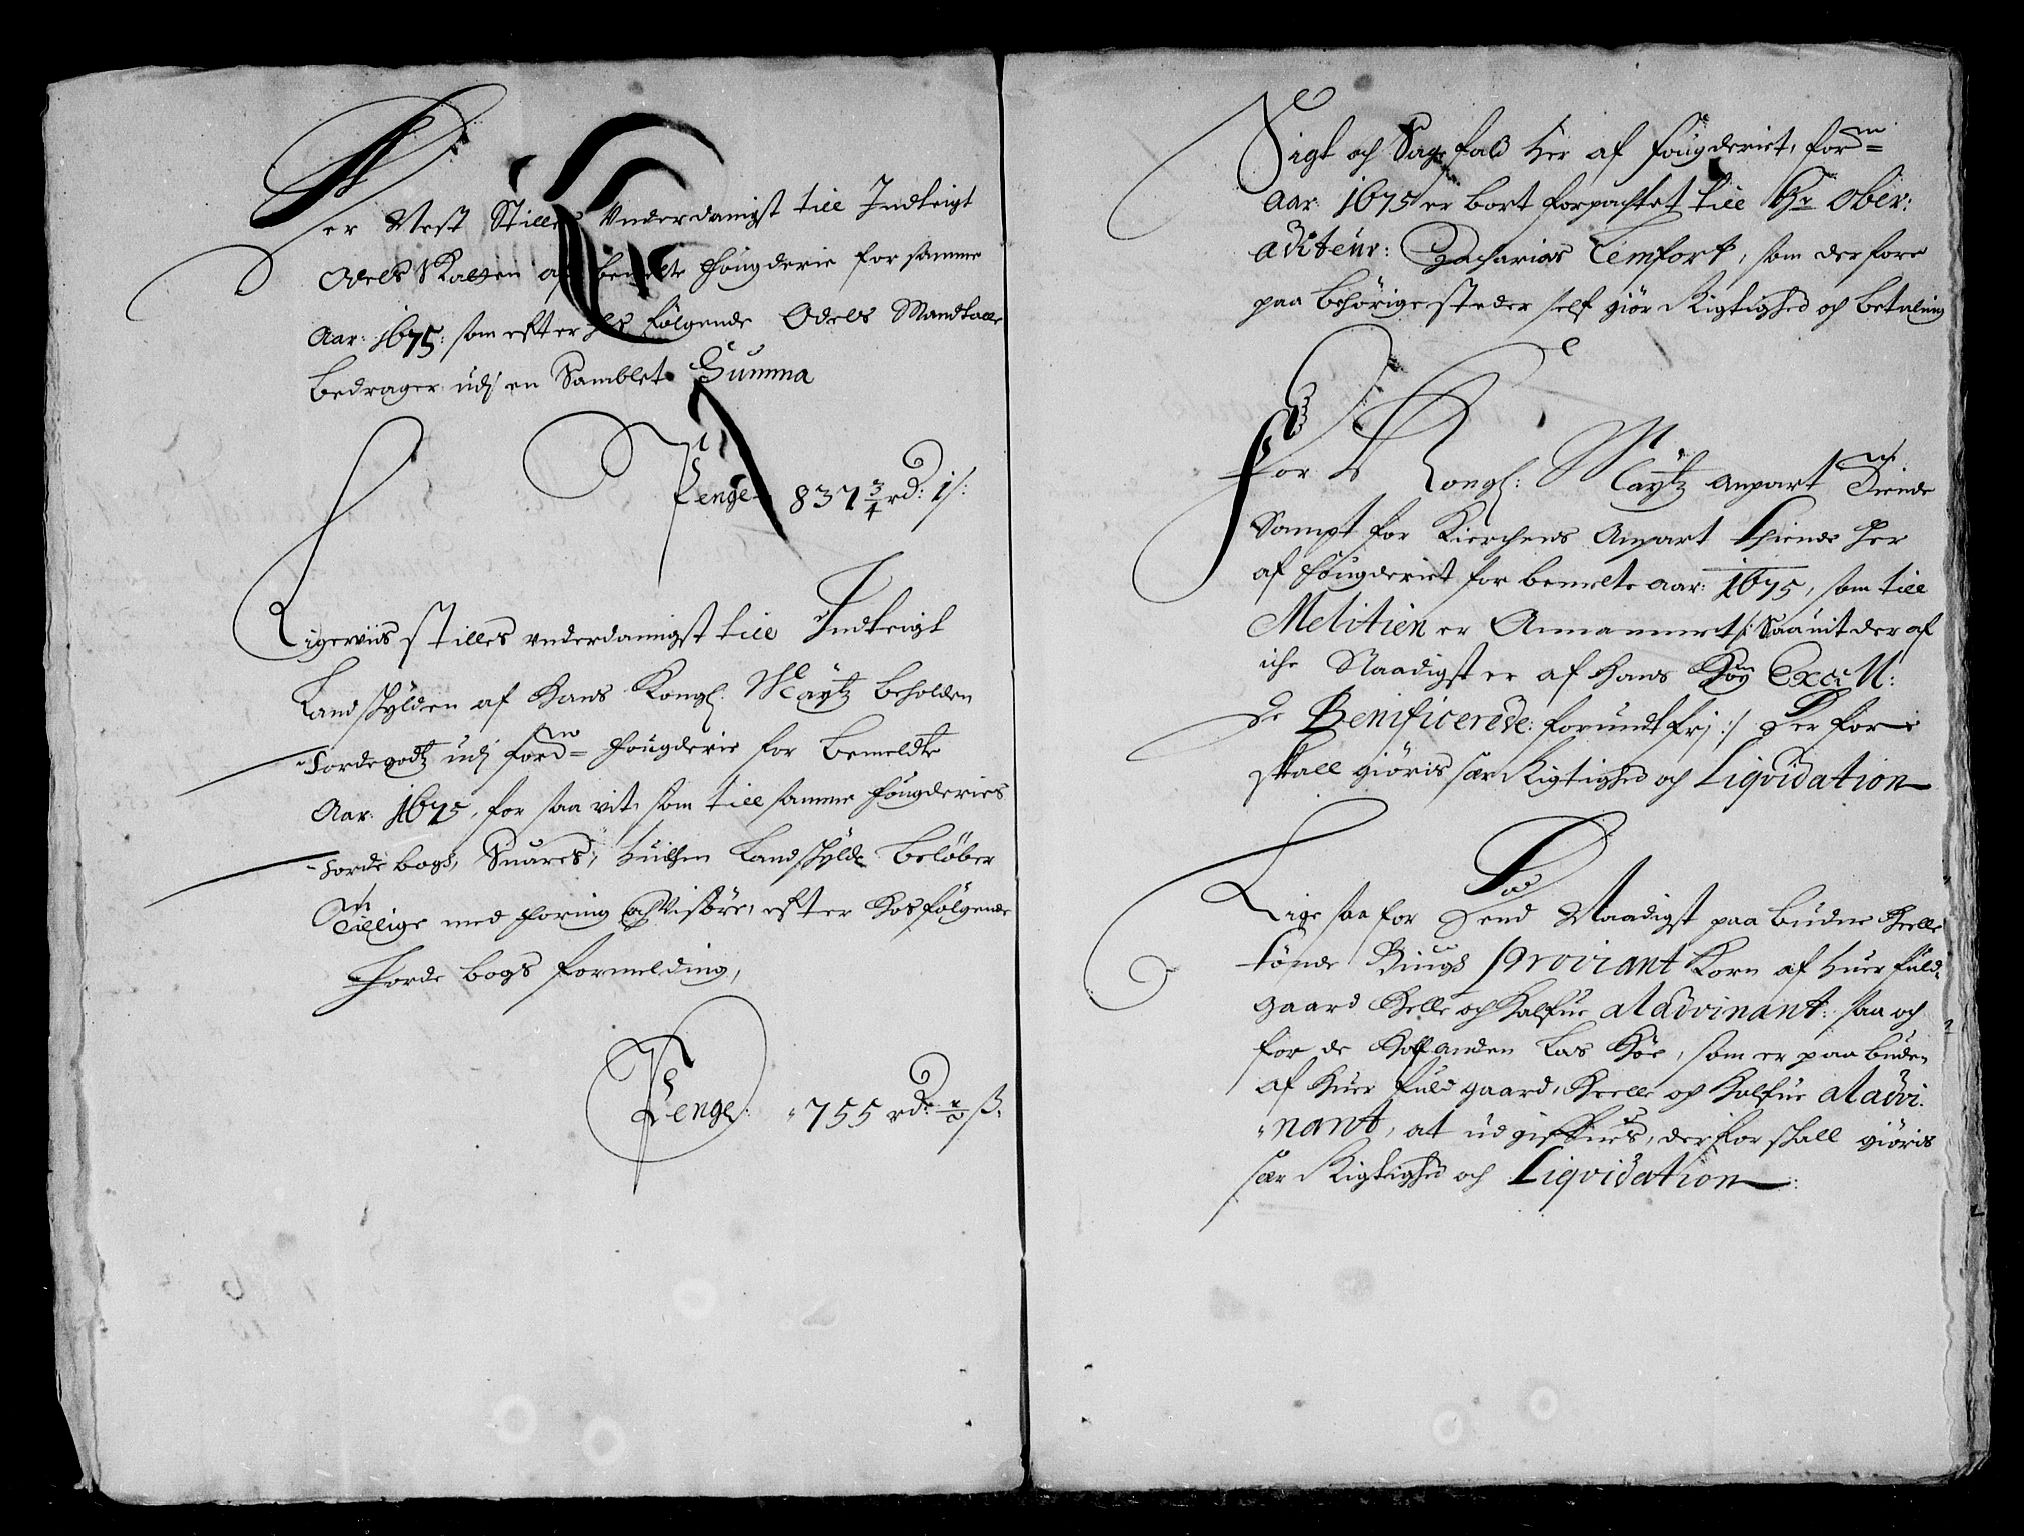 Her Nest Stilles Underdanigst till Indteigt
Odels Skatten af bemelte fougderie for samme
Aar: 1675: som efter her følgende Odels Mandtalle
bedrager udj en Samblet Summa
Penge 837 3/4 rd: 1 s:
Ligerviis stilles underdannigst till Indteigt
Landskylden af Hans Kongl: Maytz beholden
Jordegodtz udj ford= fougderie for bemeldte
Aar: 1675, for saa vit som till samme fougderies
Jordebogs, Suares, huilchen Landskylde beløber
Tillige med foring och Visøre, efter hosfølgende
Jorde bogs formelding,
Penge: 755 rd: ß:
Sigt och Sagefald her af fougderiet, for=
Aar: 1675 er bort forpachtet till Hr Ober:
aditeur: Zacharias Temfort, som derfore
paa behörige steder self giör Rigtighed och betaling
For Kongl: Maytz anpart Tiende
Sampt for Kierchens Anpart Thiende her
af fougderiet for bemelte aar: 1675, som till
Melitien er Annammet /: Saauit der af
iche Naadigst er af Hans Høy Excell:
de Benificerede: forundt frj :/ Derfore
skall giöris sær Rigtighed och Liqvidation
Lige saa for Dend Naadigst paa budne Heelle
tønde Biugs Proviant Korn af huer fuld=
gaard Helle och Halfue aladvinant: saa och
for de Las Höe, som er paa buden
af huer fuld gaard, Heelle och Halfue aladvi=
nant, at udgiffues, derfor skall giöris
sær Rigtighed och Liqvidation: